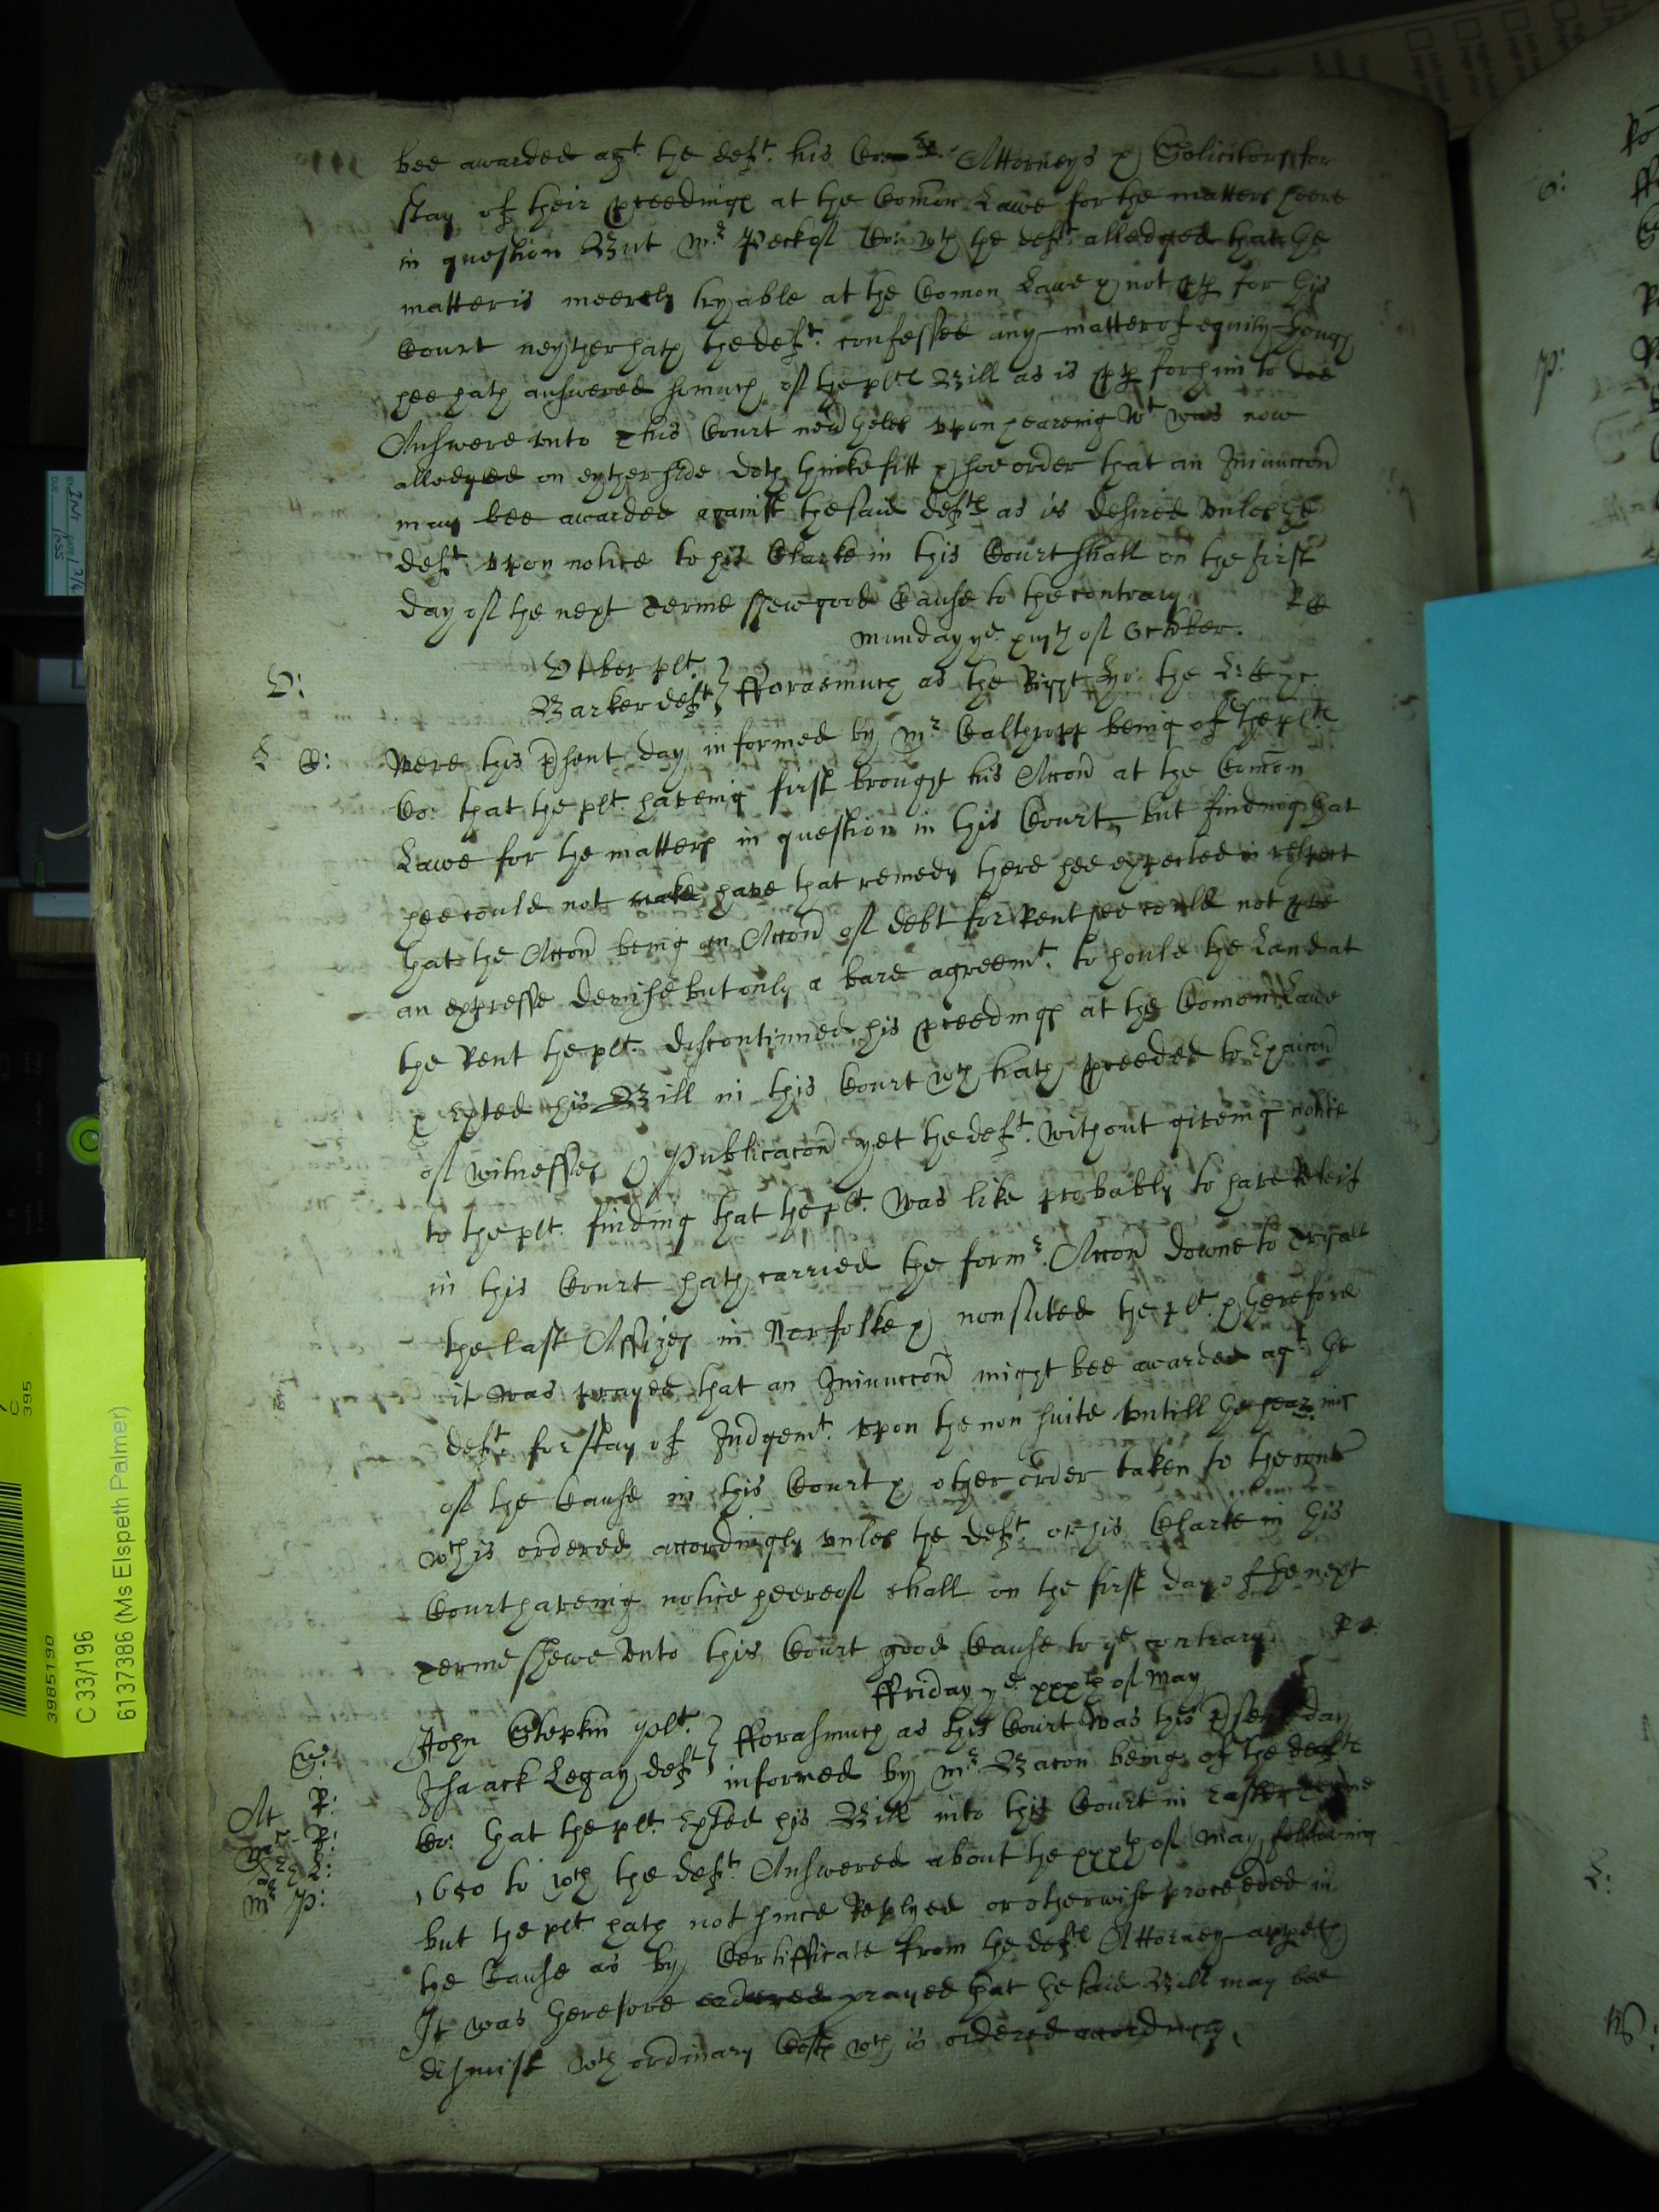 bee awarded agt. the deft. his Co: Attorneys & Solicitors for
stay of their proceedings at the Comon Lawe for the matters heere
in question But Mr. Peck of Co: wth the deft. alledged that the
matter is meerely tryable at the Comon Lawe & not pp for this
Court neyther hath the deft. confessed any matter of equity though
hee hath answered somuch of the plts Bill as is pp for him to doe
Answere unto This Court neverthelesse upon heareing wt was now
alledged on eyther side doth thinke fitt & soe order that an Iniunccon
may bee awarded against the said deft as is desired unles the
deft upon notice to his Clarke in this Court shall on the first
day of the next Terme shew good Cause to the contrary
Munday ye. xiijth of October.
D:
Barker deft } fforasmuch as the Right Ho: the L: &c
L C:
Were this psent day informed by Mr. Calthropp being of the plts
Co: that the plt. haveing first brought his Accon at the Comon
Lawe for the matters in question in this Court, but finding that
hee could not make have that remedy there hee expected in respect
that the Accon being an Accon of debt for Rent hee could not pve
an expresse demise but only a bare agreemt. to hould the Land at
the Rent the plt. discontinued his pceedings at the Comon Lawe
& exhted his Bill in this Court wch hath pceeded to Exaicon
of witnesses & Publicacon yet the deft. without giveing notice
to the plt. finding that the plt. was like probably to have Releif
in this Court hath carried the formr. Accon downe to Tryall
the last Assizes in Norfolke & nonsuted the plt. & therefore
it was prayed that an Iniunccon might bee awarded agt the
deft. for stay of Iudgemt. upon the non suite untill the hearing
of the Cause in this Court & other order taken to the contr
wch is ordered accordingly unles the deft. or his Clarke in this
Court haveing notice heereof shall on the first day of the next
Terme shewe unto this Court good Cause to ye contrary.
ffriday ye xxxth of May
John Stepkin plt. } fforasmuch as this Court was this psent day
Isaack Legay deft } informed by Mr. Bacon being of the defts
Co: that the plt. exhted his Bill into this Court in Easter Terme
1650 to wch the deft. Answered about the xxxth of May following
but the plt. hath not since Replyed or otherwise proceeded in
the Cause as by Certifficate from the defts Attorney appeth
It was therefore ordered prayed that the said Bill may bee
dismist wth ordinary Costs wch is ordered accordingly.
C 33/196
61137386 (Ms Elspeth Palmer)
3985190
C
395